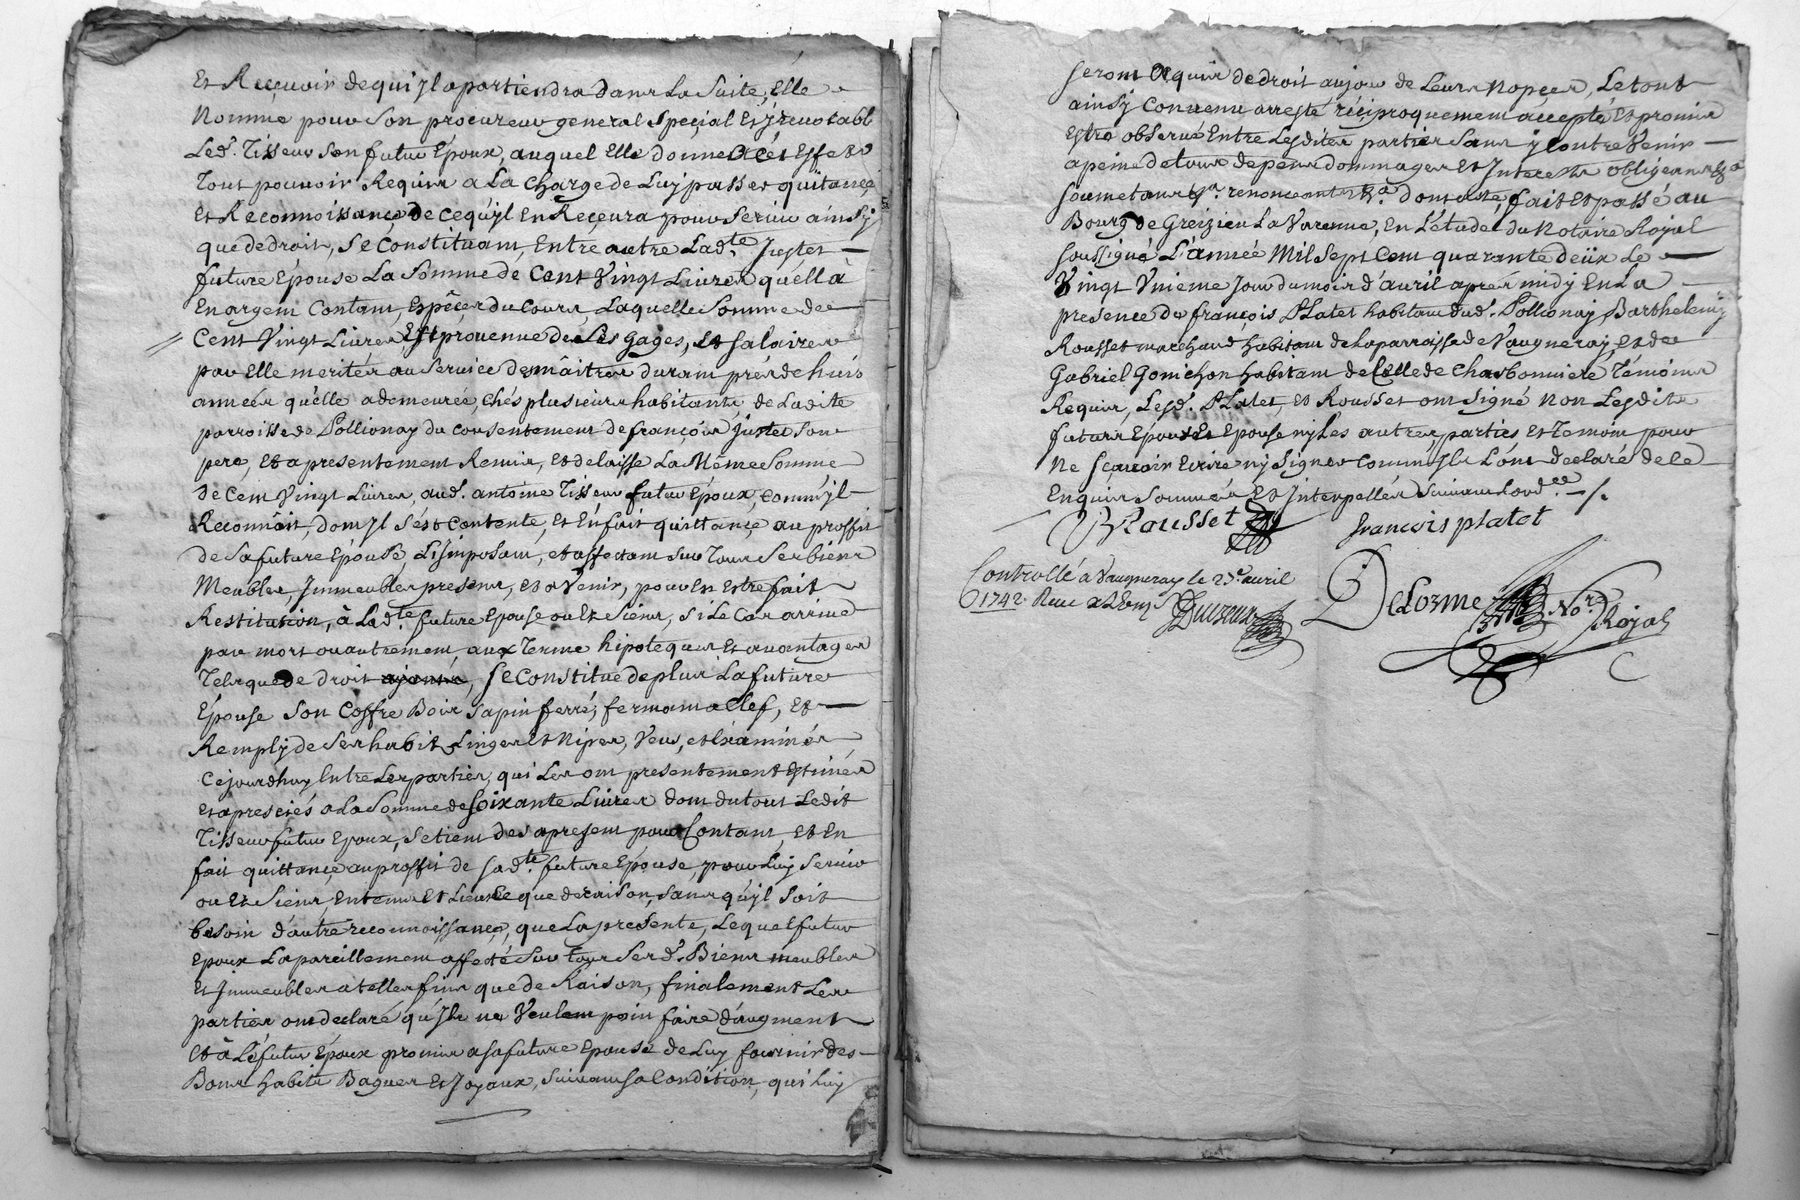 Et Reçevoir de qui Jl apartiendra dans La Suite, Elle
Nomme pour Son procureur general Speçial Et jrrevocabl
Led. Tisseur Son futur Epoux, auquel Elle donne a Cét Effet
tout pouvoir Requis a La Charge de Luy passer quitance
Et Reconnoissance, de ce quyl En Reçeura pour Seruir ainsy
que de droit, Se Constituant, Entre autre Ladte Justet
future Epouse La Somme de Cent Vingt Liures quéll à
En argent Contant, Espêces du Cours, Laquelle Somme de
Cent Vingt Liures Est prouenue de Ses gages, Et Salaires
par Elle merités au Seruice de mâitres durant prés de huis
années qu'elle a demeurée, chés plusieurs habitants, de Ladite
parroisse de Pollionay du consentement de françois Justet Son
pere, Et a presentement Remis, et delaisse La Même Somme
de Cent Vingt Liures, aud. antoine Tisseur futur Epoux, comm'yl
Reconnoit, dont Jl s'est Contente, et En fait quittançe au proffit
de Sa future Epouse, L'imposant, et affectant Sur tous Ses biens
Meubles, Jmmeubles presens, et a Venir, pour En Estre fait
Restitution, à Ladte. future Epouse ou Et Siens, Si Le Cas arrive
par mort ou autrement, aux terme hipoteques et auantages
Tels que de droit, Se Constitue de plus La future
Épouse Son Coffre Bois Sapin ferré, fermant a Clef, Et
Remply de Ses habit Linges Et Nipes, Veus, et Exáminés
Cejourdhuy Entre Les parties, qui Les ont presentement Estimés
Et apreciés a La Somme de Soixante Liures dont du tout Ledit
Tisseur futur Epoux, Se tient des apresent pour Contant, Et En
fait quittance au proffit de Sadte. future Epouse, pour Luy Seruir
ou Et Siens, En tems Et Lieux Ce que de raison, Sans qu'yl Soit
besoin d'autre reconnoissançe, que La presente, Lequel futur
Epoux La pareillement affecté Sur tous Sesd. Biens meubles
Et Jmmeubles a telles fins que de Raison, finalement Les
parties ont declaré qu'Jls ne Veulent poin faire d'augment
Et à Le futur Epoux promis a Sa future Epouse de Luy fournir des
Bons habits Bagues Et Joyaux, Suivant Sa Condition, qui Luy
Seront acquis de droit au jour de Leurs Nopçes, Le tout
ainsy Convenu arresté réciproquement accepté Et promis
Estre obserué Entre Lesdites parties Sans y Contrevenir
a peine de tous depens dommages Et Interests obligeans &a
Soumetans &a. renonceant &a. dont acte, fait et passé au
Bourg de Greizieu La Varenne, En L'etude du Notaire Royal
Soussigné L'année Mil Sept Cent quarante deüx Le
Vingt Unieme Jour du mois d'auril aprés midy En La
presence de françois Platet habitant dud. Pollionay, Barthelemy
Rousset marchand habitant de La parroisse de Vaugneray, et de
Gabriel Gonichon habitant de Celle de Charbonniere Témoins
Requis, Lesd. Platet, et Rousset ont Signé Non Lesdits
futurs Epoux Et Epouse ny Les autres parties Et Temoin pour
Ne Sçauoir Ecrire ny Signer Comm'Jls L'ont declaré de Ce
Enquis Sommés Et Jnterpellés Suivant Lord.ce
BRousset françois platet
Controllé a Vaugneray le 23e. auril
1742 Reçu
Delorme Nore
Royal